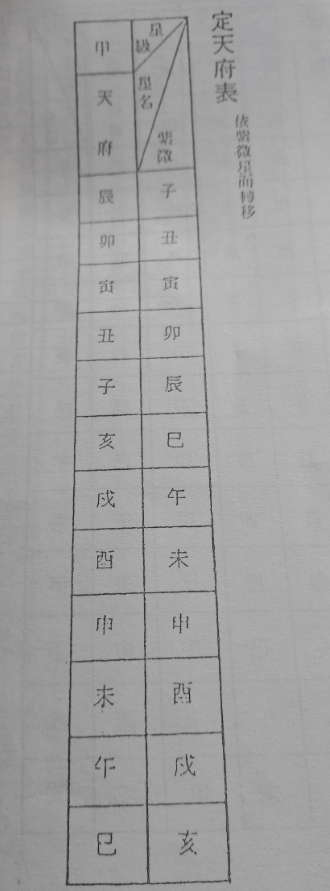 定天府表
依紫微星而轉移
星級
星名
紫微
子
丑
寅
卯
辰
巳
午
未
申
酉
戌
亥
甲
天府
辰
卯
寅
丑
子
亥
戌
酉
申
未
午
巳